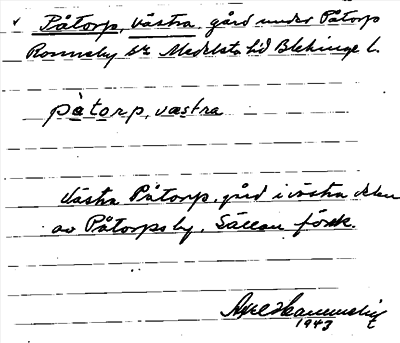 ✓ Påtorp, Västra gård under Påtorp
Ronneby sn Medelsta hd Blekinge l.
påtorp, vastra
Västra Påtorp. gård i västra delen
av Påtorps by. Sällan förek.
1943